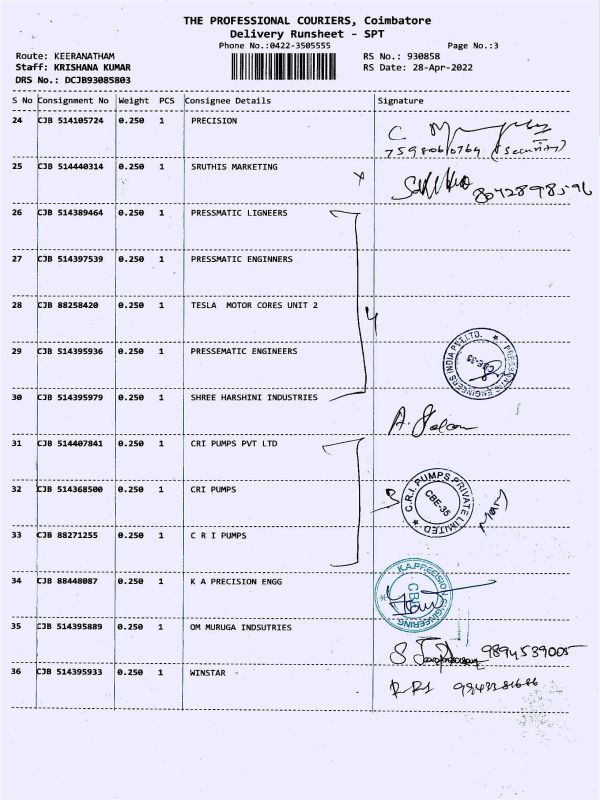 THE PROFESSIONAL COURIERS, Coimbatore
Delivery Runsheet - SPT
Phone No.:0422-3505555
Page No.:3
Route: KEERANATHAM
RS No.: 930858
Staff: KRISHANA KUMAR
RS Date: 28-Apr-2022
DRS No.: DCJB93085803
S No Consignment No Weight PCS Consignee Details Signature
24 CJB 514105724 0.250 1 PRECISION
(Security)
25 CJB 514440314 0.250 1 SRUTHIS MARKETING
26 CJB 514389464 0.250 1 PRESSMATIC LIGNEERS
27 CJB 514397539 0.250 1 PRESSMATIC ENGINNERS
28 CJB 88258420 0.250 1 TESLA MOTOR CORES UNIT 2
4
29 CJB 514395936 0.250 1 PRESSEMATIC ENGINEERS
30 CJB 514395979 0.250 1 SHREE HARSHINI INDUSTRIES
31 CJB 514407841 0.250 1 CRI PUMPS PVT LTD
32 CJB 514368500 0.250 1 CRI PUMPS
3
C.R.I. PUMPS PRIVATE LIMITED
CBE-35
33 CJB 88271255 0.250 1 C R I PUMPS
34 CJB 88448087 0.250 1 K A PRECISION ENGG
35 CJB 514395889 0.250 1 OM MURUGA INDSUTRIES
9894539005
36 CJB 514395933 0.250 1 WINSTAR